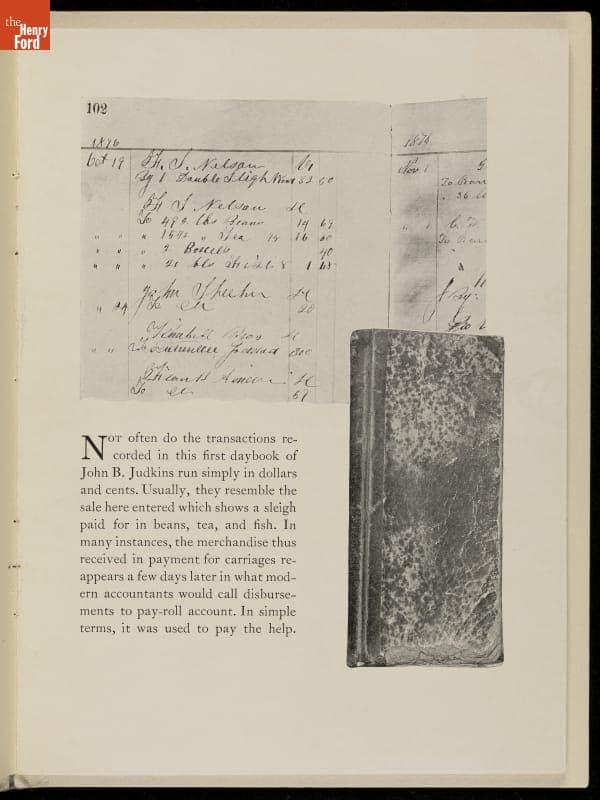 the
Henry
Ford
102
1876
1876
Oct 19 H. J. Nelson
1 Double Sleigh 32 60
Nov. 1
H J Nelson
To 49 lbs Beans 14 69
" " " Tea 16 60
" " " 2 40
" " " 1 68
John
20
" "
800
Frank
To
NOT often do the transactions re-
corded in this first daybook of
John B. Judkins run simply in dollars
and cents. Usually, they resemble the
sale here entered which shows a sleigh
paid for in beans, tea, and fish. In
many instances, the merchandise thus
received in payment for carriages re-
appears a few days later in what mod-
ern accountants would call disburse-
ments to pay-roll account. In simple
terms, it was used to pay the help.